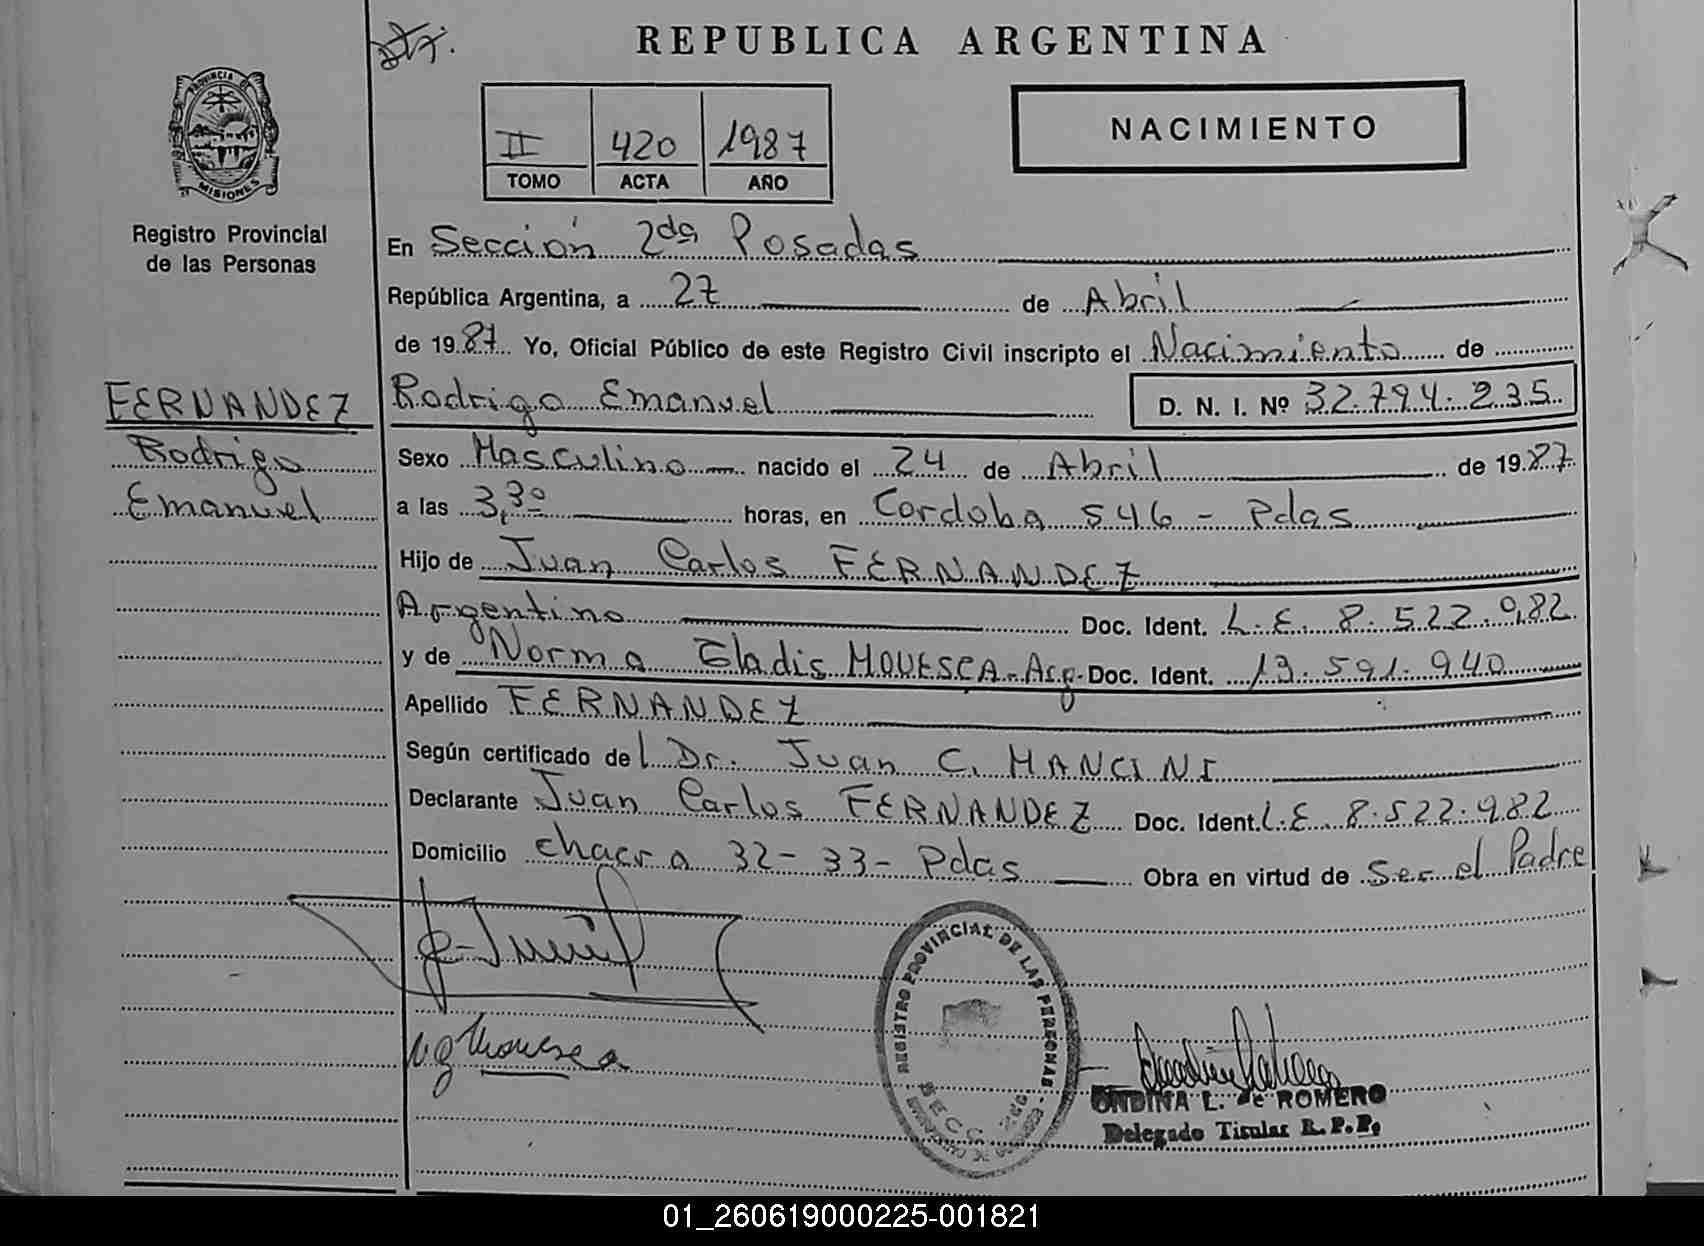 REPUBLICA ARGENTINA
PROVINCIA DE
MISIONES
Registro Provincial
de las Personas
II 420 1987
TOMO ACTA AÑO
NACIMIENTO
En Sección 2da Posadas
República Argentina, a 27 de Abril
de 1987 Yo, Oficial Público de este Registro Civil inscripto el Nacimiento de
FERNANDEZ
Rodrigo
Emanuel
Rodrigo Emanuel D. N. I. Nº 32.794.235
Sexo Masculino nacido el 24 de Abril de 1987
a las 3,30 horas, en Cordoba 546 - Pdas
Hijo de Juan Carlos FERNANDEZ
Argentino Doc. Ident. L.E. 8.522.982
y de Norma Gladis MOUESCA - Arg. Doc. Ident. 13.591.940
Apellido FERNANDEZ
Según certificado del Dr. Juan C. MANCINI
Declarante Juan Carlos FERNANDEZ Doc. Ident. L.E. 8.522.982
Domicilio chacra 32-33- Pdas Obra en virtud de Ser el Padre
REGISTRO PROVINCIAL DE LAS PERSONAS
SECC. 2da
NGMouesca
ONDINA L. de ROMERO
Delegado Titular R.P.P.
01_260619000225-001821